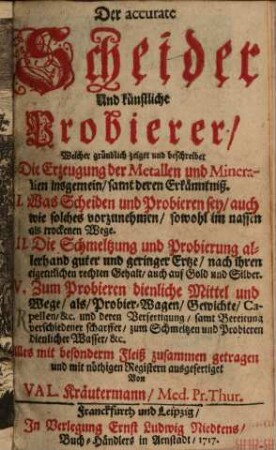 Der accurate
Scheider
Und künstliche
Probierer/
Welcher gründlich zeiget und beschreibet
Die Erzeugung der Metallen und Minera-
lien insgemein/ samt deren Erkänntniß.
I. Was Scheiden und Probieren sey/ auch
wie solches vorzunehmen/ sowohl im nassen
als trockenen Wege.
II. Die Schmeltzung und Probierung al-
lerhand guter und geringer Ertze/ nach ihren
eigentlichen rechten Gehalt/ auch auf Gold und Silber.
V. Zum Probieren dienliche Mittel und
Wege/ als/ Probier-Wagen/ Gewichte/ Ca-
pellen/ &c. und deren Verfertigung/ samt Bereitung
verschiedener scharffer/ zum Schmeltzen und Probieren
dienlicher Wasser/ &c.
Alles mit besonderm Fleiß zusammen getragen
und mit nöthigen Registern ausgefertiget
Von
VAL. Kräutermann/ Med. Pr. Thur.
Franckfurth und Leipzig/
In Verlegung Ernst Ludwig Niedtens/
Buch-Händlers in Arnstadt/ 1717.